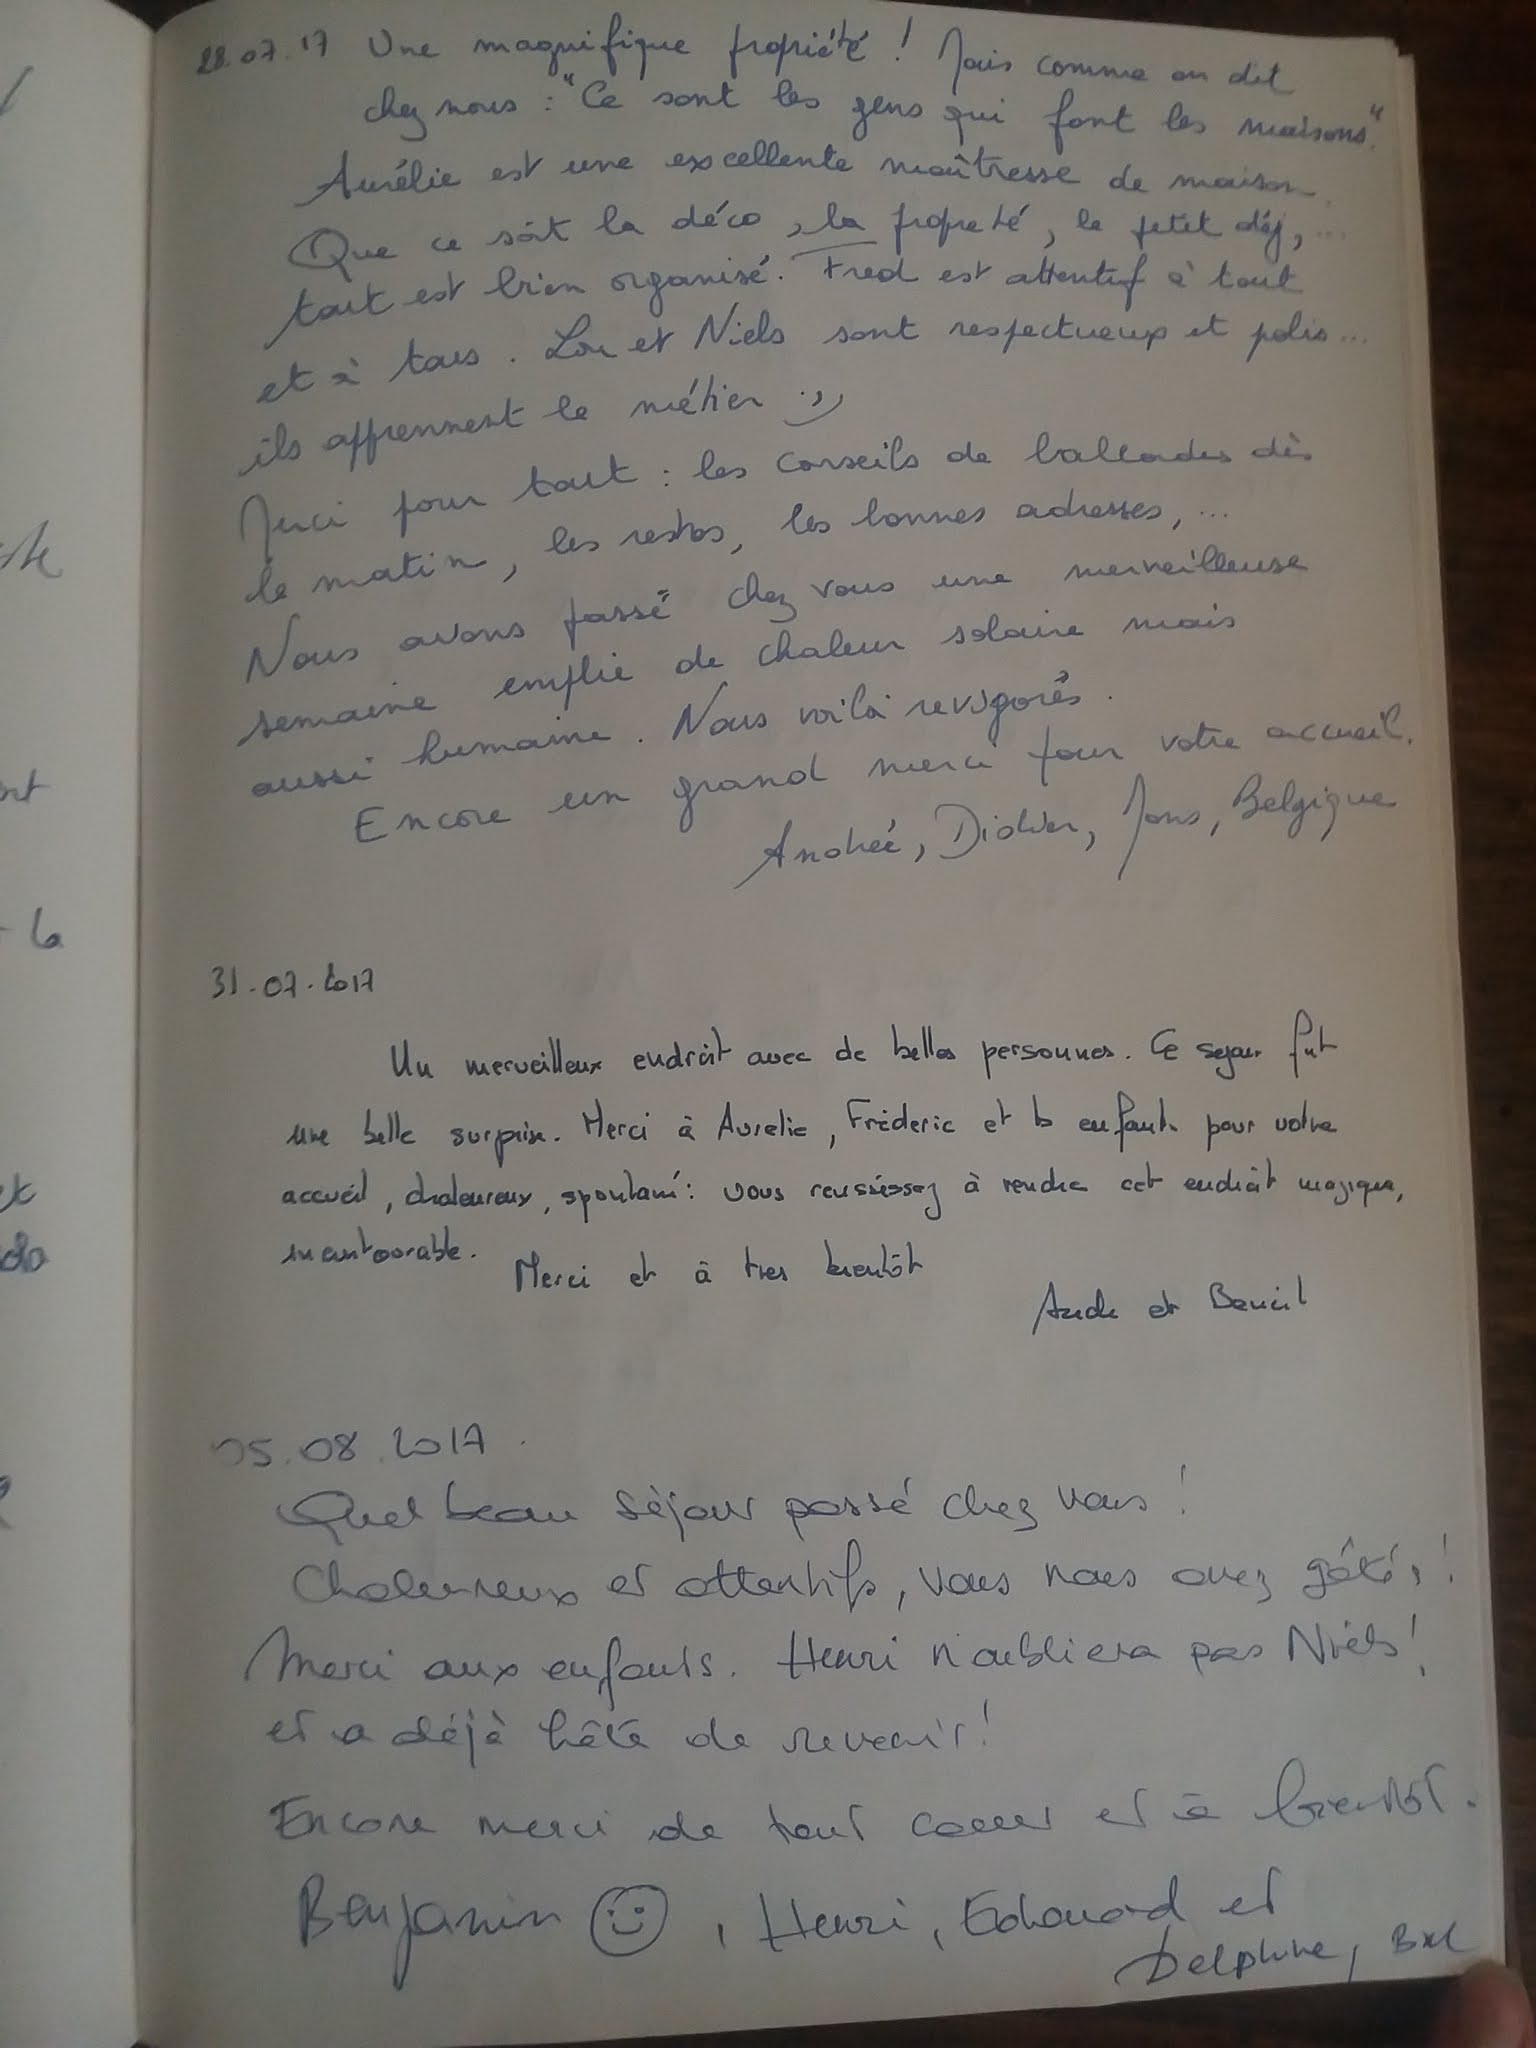 28.07.17 Une magnifique propriété ! Mais comme on dit
chez nous : "Ce sont les gens qui font les maisons".
Aurélie est une excellente maîtresse de maison.
Que ce soit la déco, la propreté, le petit déj, ...
tout est bien organisé. Fred est attentif à tout
et à tous. Lou et Niels sont respectueux et polis...
ils apprennent le métier :))
Merci pour tout : les conseils de ballades dès
le matin, les restos, les bonnes adresses, ...
Nous avons passé chez vous une merveilleuse
semaine emplie de chaleur solaire mais
aussi humaine. Nous voilà revigorés.
Encore un grand merci pour votre accueil.
Andrée, Didier, Mons, Belgique
31.07.2017
Un merveilleux endroit avec de belles personnes. Ce sejour fut
une belle surprise. Merci à Aurelie, Fréderic et les enfants pour votre
accueil, chaleureux, spontané : vous reussissez à rendre cet endroit magique,
incontourable.
Merci et à tres bientôt
Aude et Benoit
05.08.2017.
Quel beau séjour passé chez vous !
Chaleureux et attentifs, vous nous avez gâtés !
Merci aux enfants. Henri n'oubliera pas Niels !
et a déjà hâte de revenir !
Encore merci de tout coeur et à bientôt.
Benjamin ☺, Henri, Edouard et
Delphine, Bxl
et